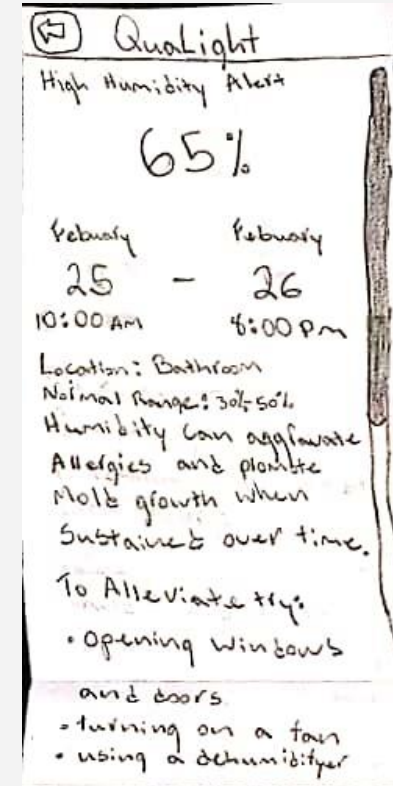 QuaLight
High Humidity Alert
65%
Febuary Febuary
25 - 26
10:00 AM 8:00 PM
Location: Bathroom
Normal Range: 30%-50%
Humidity can aggravate
Allergies and promote
Mold growth when
Sustained over time.
To Alleviate try:
• Opening windows
and doors
• turning on a fan
• using a dehumidifyer